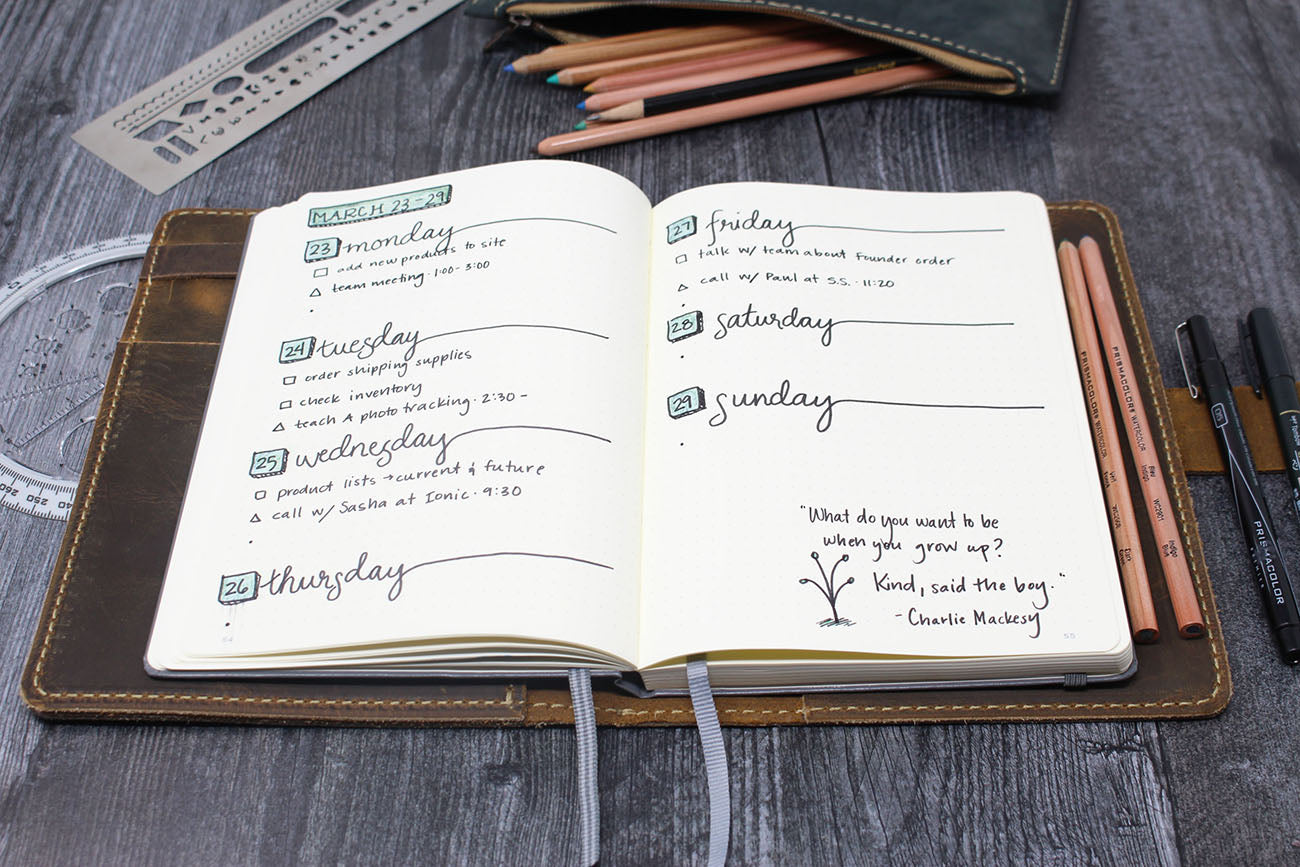 MARCH 23-29
23 monday
add new products to site
team meeting · 1:00 - 3:00
24 tuesday
order shipping supplies
check inventory
teach A photo tracking · 2:30 -
25 wednesday
product lists → current & future
call w/ Sasha at Ionic · 9:30
26 thursday
54
27 friday
talk w/ team about Founder order
call w/ Paul at S.S. · 11:20
28 saturday
29 sunday
"What do you want to be
when you grow up?
Kind, said the boy."
- Charlie Mackesy
55
PRISMACOLOR WATERCOLOR
PRISMACOLOR WATERCOLOR WC2901 Indigo Blue
PRISMACOLOR
05
260
250
240